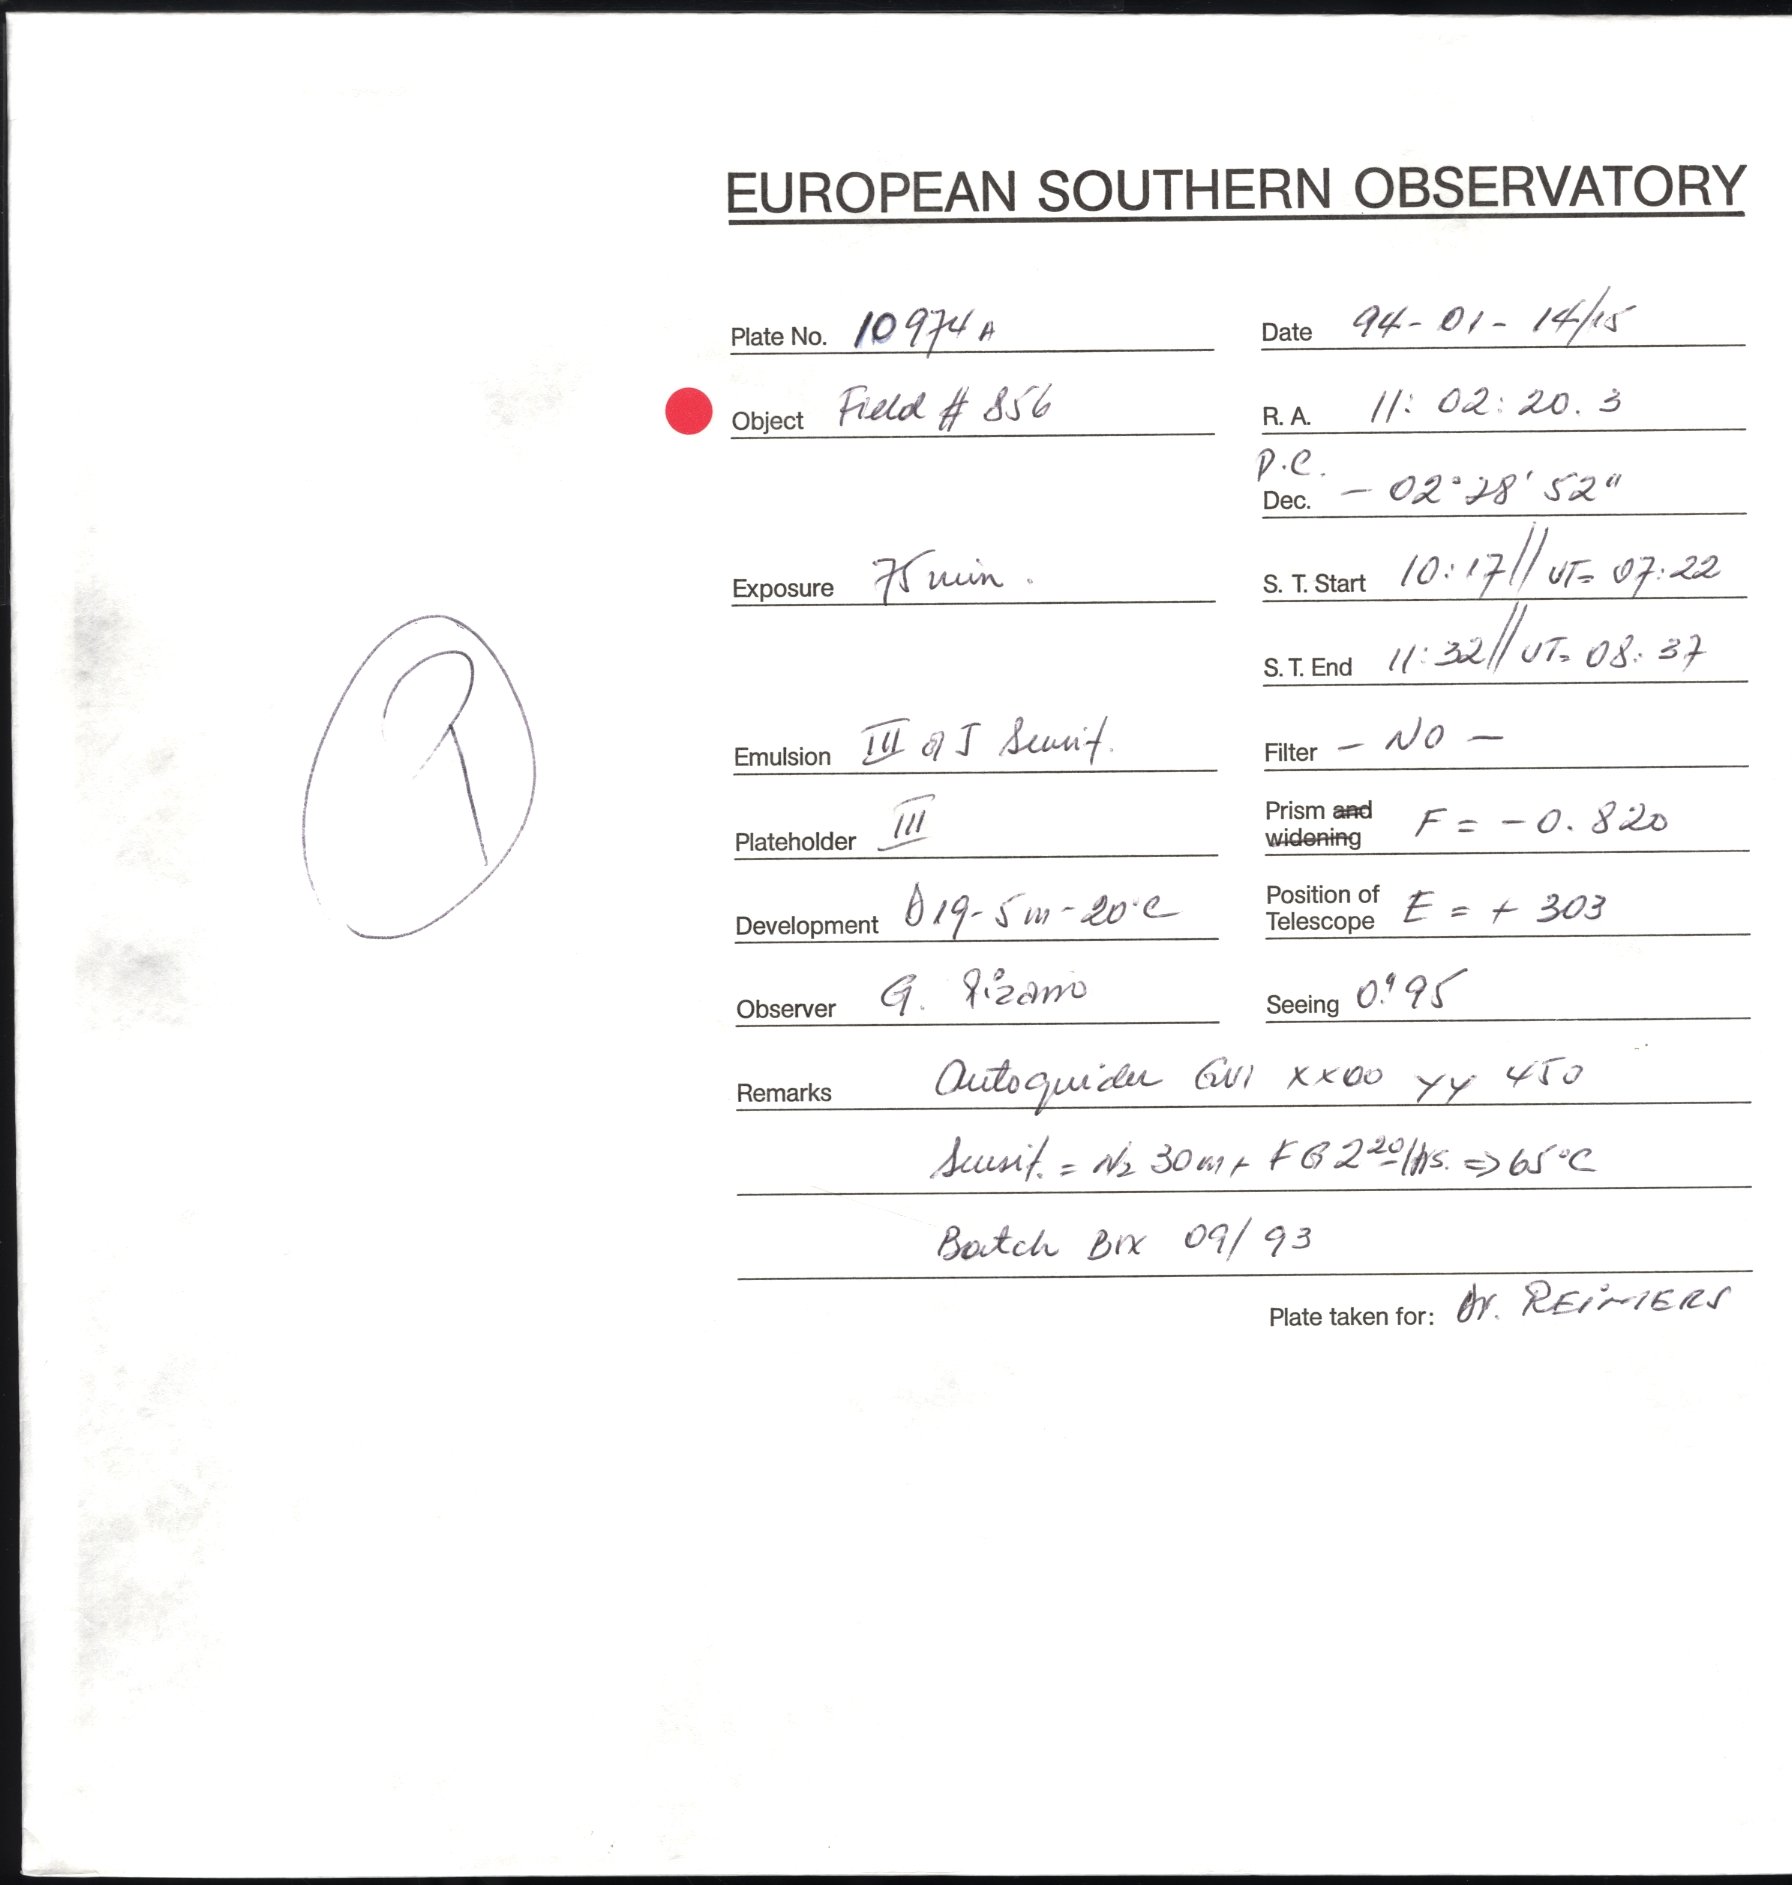 EUROPEAN SOUTHERN OBSERVATORY
Plate No. 10974A
Date 94-01-14/15
Object Field # 856
R. A. 11: 02: 20. 3
P.C.
Dec. - 02° 28' 52"
Exposure 75 min.
S. T. Start 10:17 // UT= 07:22
S. T. End 11:32 // UT= 08:37
Emulsion III a J Sensit.
Filter - NO -
Plateholder III
Prism and widening F = -0.820
Development D19-5m-20°C
Position of Telescope E = + 303
Observer G. Pizarro
Seeing 0."95
Remarks Autoguider XX00 YY 450
Sensit. = N2 30m + FG 2 20/Hrs. => 65°C
Batch Box 09/93
Plate taken for: Dr. REIMERS